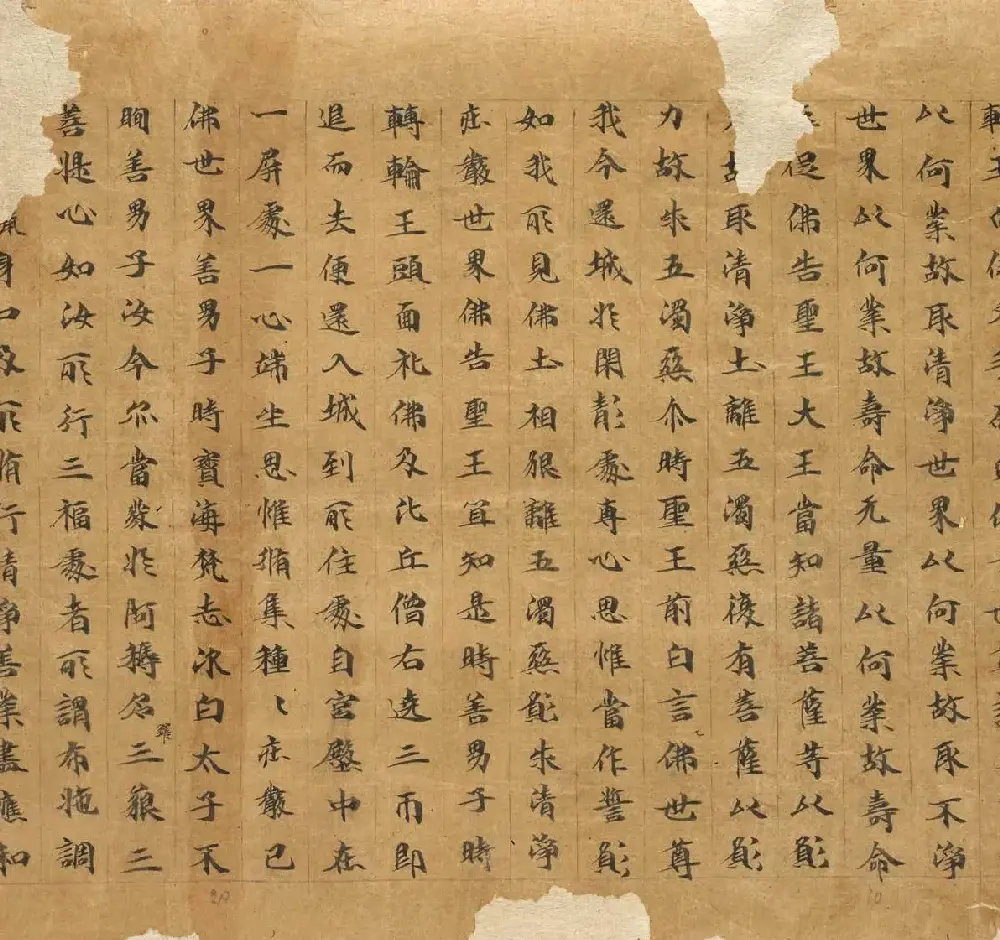 以何業故取清淨世界以何業故取不淨
世界以何業故壽命无量以何業故壽命
促佛告聖王大王當知諸菩薩等以願
故取清淨土離五濁惡復有菩薩以願
力故求五濁惡尒時聖王前白言佛世尊
我今還城於閑靜處專心思惟當作誓願
如我所見佛土相貌離五濁惡願求清淨
莊嚴世界佛告聖王宜知是時善男子時
轉輪王頭面礼佛及比丘僧右遶三帀即
退而去便還入城到所住處自宮殿中在
一屏處一心端坐思惟脩集種〻莊嚴己
佛世界善男子時寶海梵志次白太子不
眴善男子汝今亦當發於阿耨多羅三藐三
菩提心如汝所行三福處者所謂布施調
身口及所脩行清淨善業盡應和